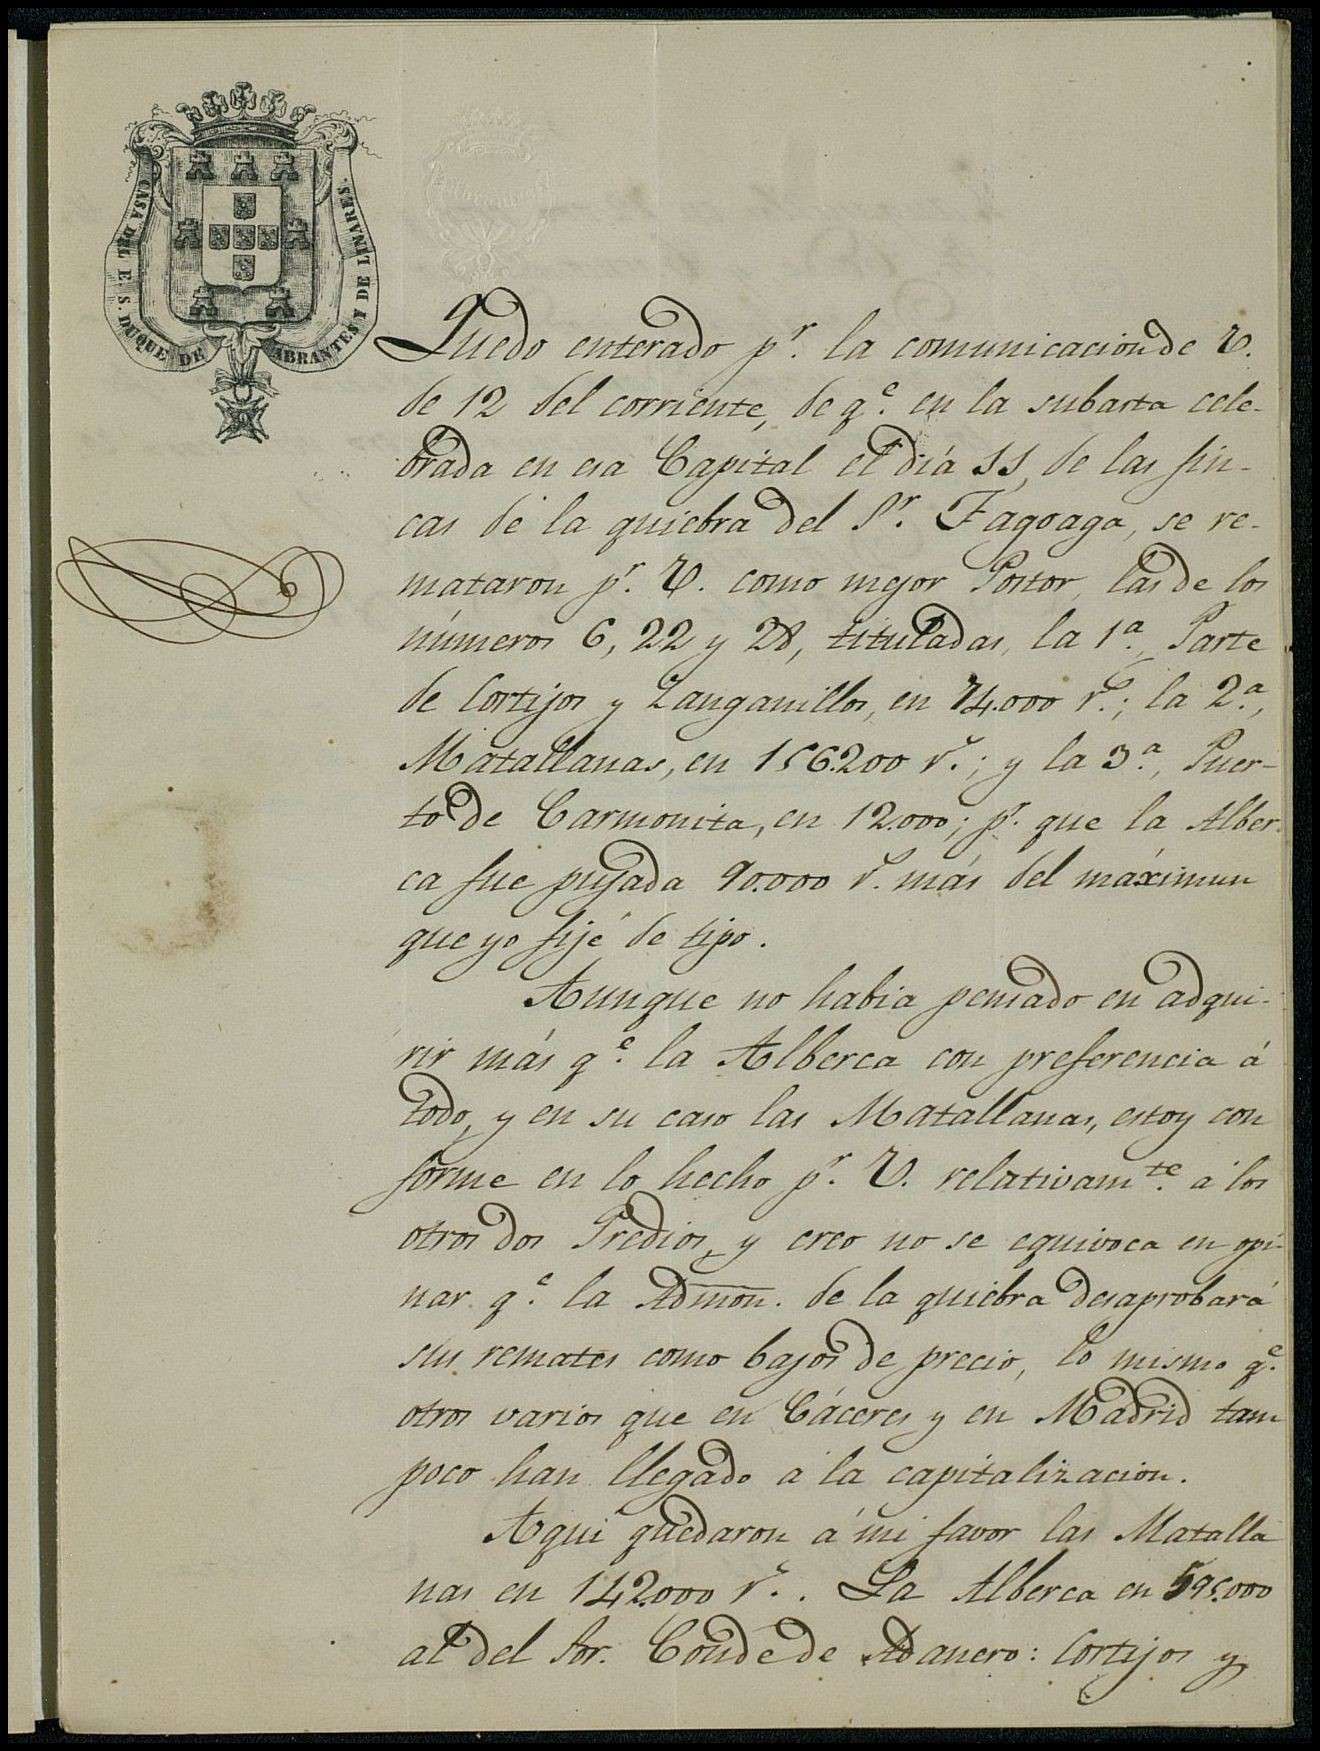 CASA DEL E. S. DUQUE DE ABRANTES Y DE LINARES.
Quedo enterado pʳ. la comunicacion de V.
de 12 del corriente, de qᵉ. en la subasta cele-
brada en esa Capital el día 11, de las fin-
cas de la quiebra del Sʳ. Fagoaga, se re-
mataron pʳ. V. como mejor Postor, las de los
números 6, 22 y 28, tituladas, la 1ª., Parte
de Cortijos y Zanganillos, en 74.000 rˢ.; la 2ª.,
Matallanas, en 156.200 rˢ.; y la 3ª., Puer-
to de Carmonita, en 12.000; pʳ. que la Alber-
ca fue pujada 90.000 rˢ. más del máximun
que yo fijé de tipo.
Aunque no habia pensado en adqui-
rir más qᵉ. la Alberca con preferencia á
todo, y en su caso las Matallanas, estoy con
forme en lo hecho pʳ. V. relativamᵗᵉ. á los
otros dos Predios, y creo no se equivoca en opi-
nar qᵉ. la Admon. de la quiebra desaprobará
sus remates como bajos de precio, lo mismo qᵉ.
otros varios que en Cáceres y en Madrid tam
poco han llegado á la capitalizacion.
Aqui quedaron á mi favor las Matalla
nas en 142.000 rˢ.. La Alberca en 595.000
al del Sor. Conde de Adanero: Cortijos y